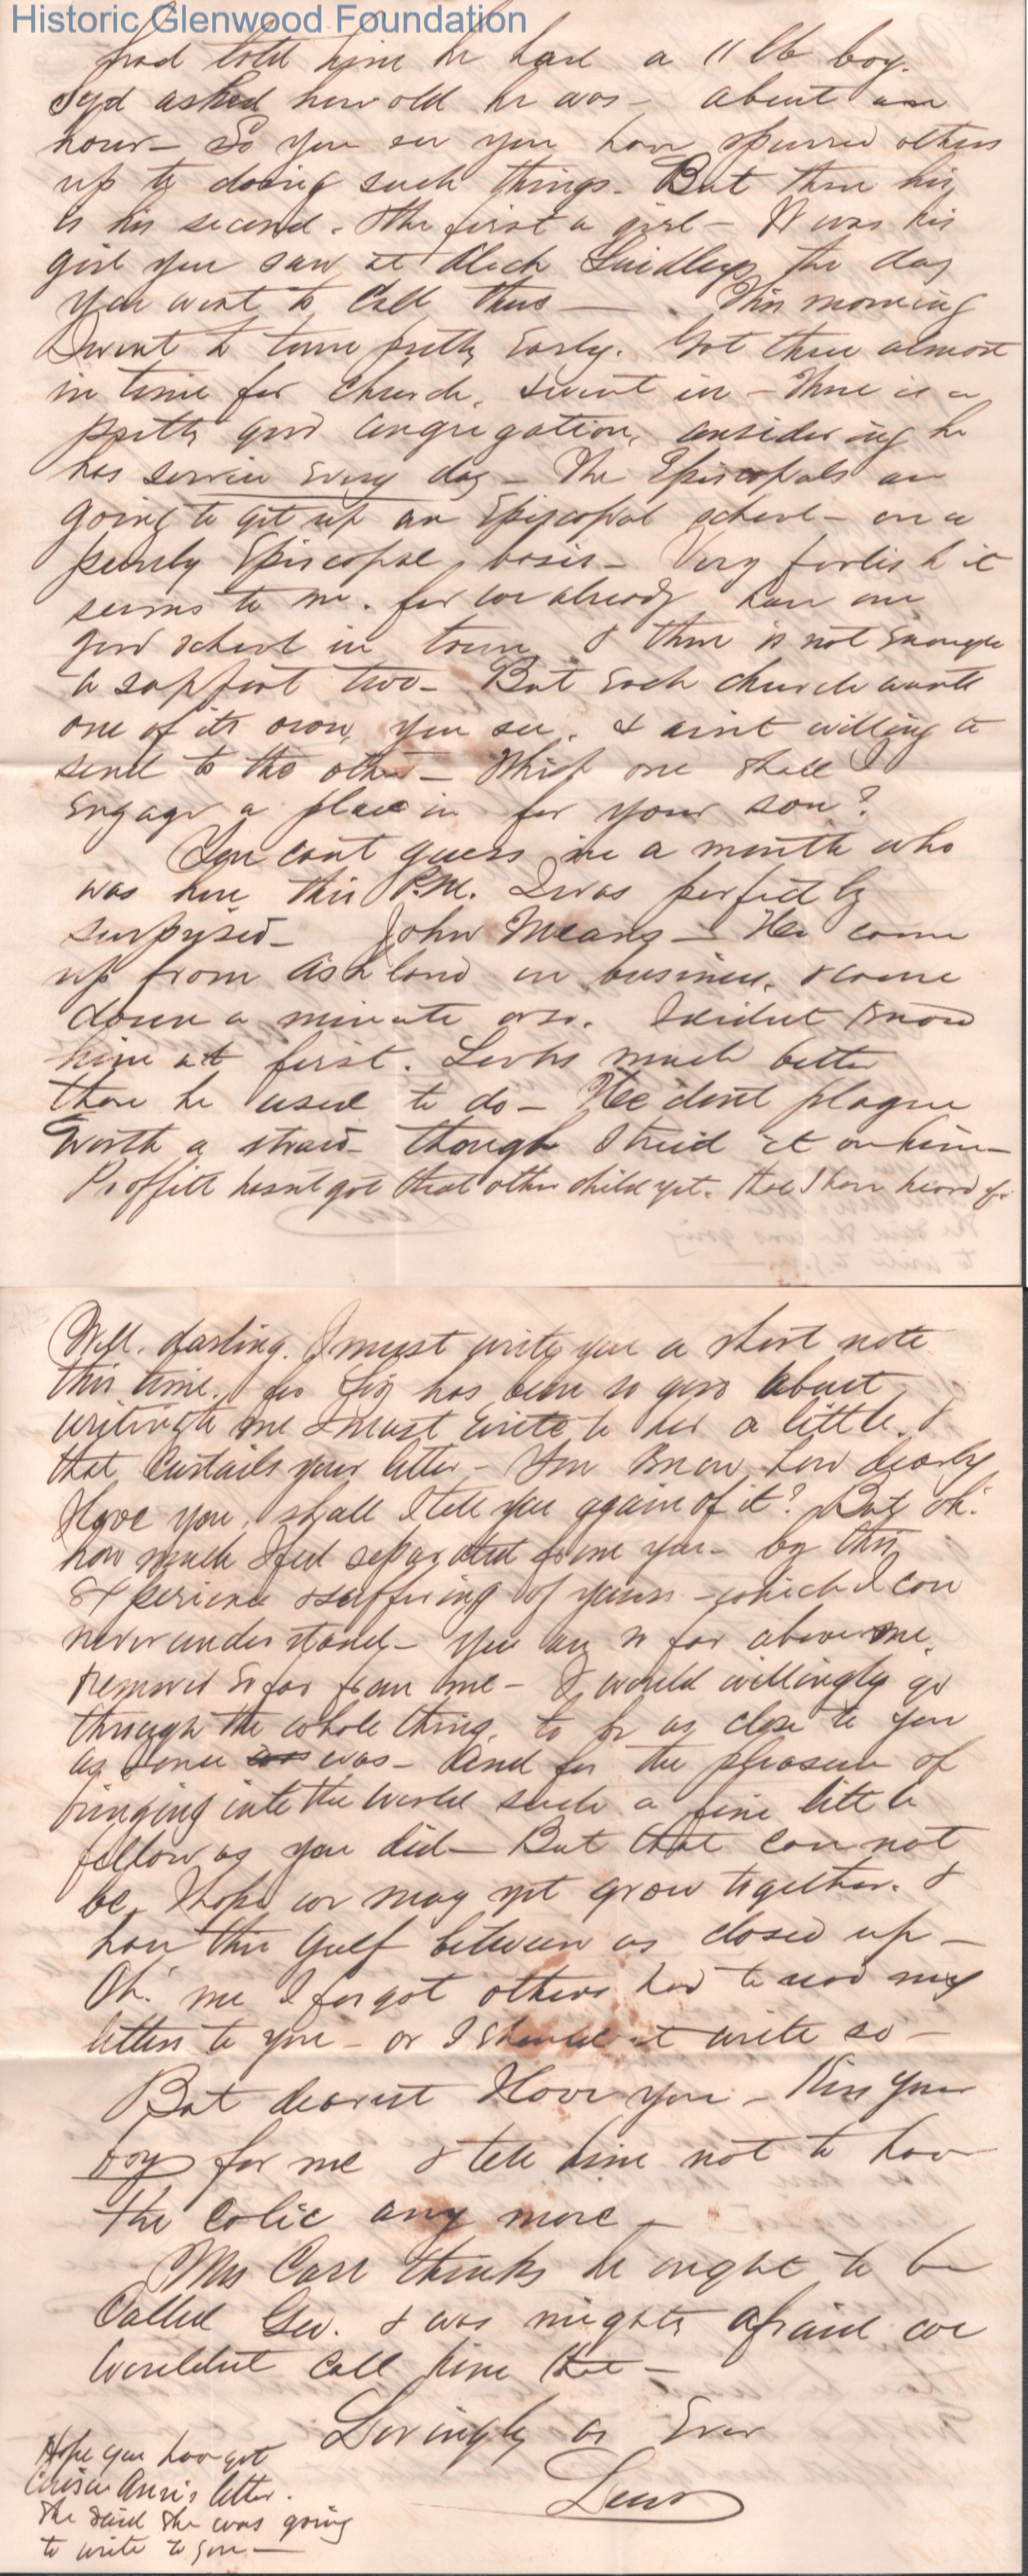 Historic Glenwood Foundation
had told him he had a 11 lb boy.
Syd asked how old he was - about an
hour - So you see you have spurred others
up to doing such things. But then his
is his second. The first a girl - It was his
girl you saw at Aleck Laidleys the day
you went to call there - This morning
I went to town pretty early. Got there almost
in time for church. & went in - There is a
pretty good congregation, considering he
has service every day - The Episcopals are
going to get up an Episcopal school - on a
purely Episcopal basis - Very foolish it
seems to me. for we already have one
good school in town & there is not enough
to support two - But each church wants
one of its own, you see. & aint willing to
send to the other - Which one shall I
engage a place in for your son?
You cant guess in a month who
was here this P.M. I was perfectly
surprised - John Means - He came
up from Ashland on business. & came
down a minute or so. I didnt know
him at first. Looks much better
than he used to do - He dont plague
worth a straw - though I tried it on him -
Proffitt hasnt got that other child yet. that I have heard of.
Well. darling. I must write you a short note
this time. for Liz has been so good about
writing to me I must write to her a little. &
that curtails your letter - You know how dearly
I love you, shall I tell you again of it? But oh!
how much I feel separated from you - by this
experience & suffering of yours - which I can
never understand - You are so far above me,
removed so far from me - I would willingly go
through the whole thing, to be as close to you
as I once was was - And for the pleasure of
bringing into the world such a fine little
fellow as you did - But that can not
be. I hope we may yet grow together. &
have this gulf between us closed up -
Oh! me I forgot others had to read my
letters to you - or I shouldnt write so -
But dearest I love you - Kiss your
boy for me & tell him not to have
the colic any more -
Mrs Carr thinks he ought to be
called Geo. & was mighty afraid we
wouldnt call him that -
Lovingly as Ever
Lewis
Hope you have got
Cousin Annie's letter.
She said she was going
to write to you -